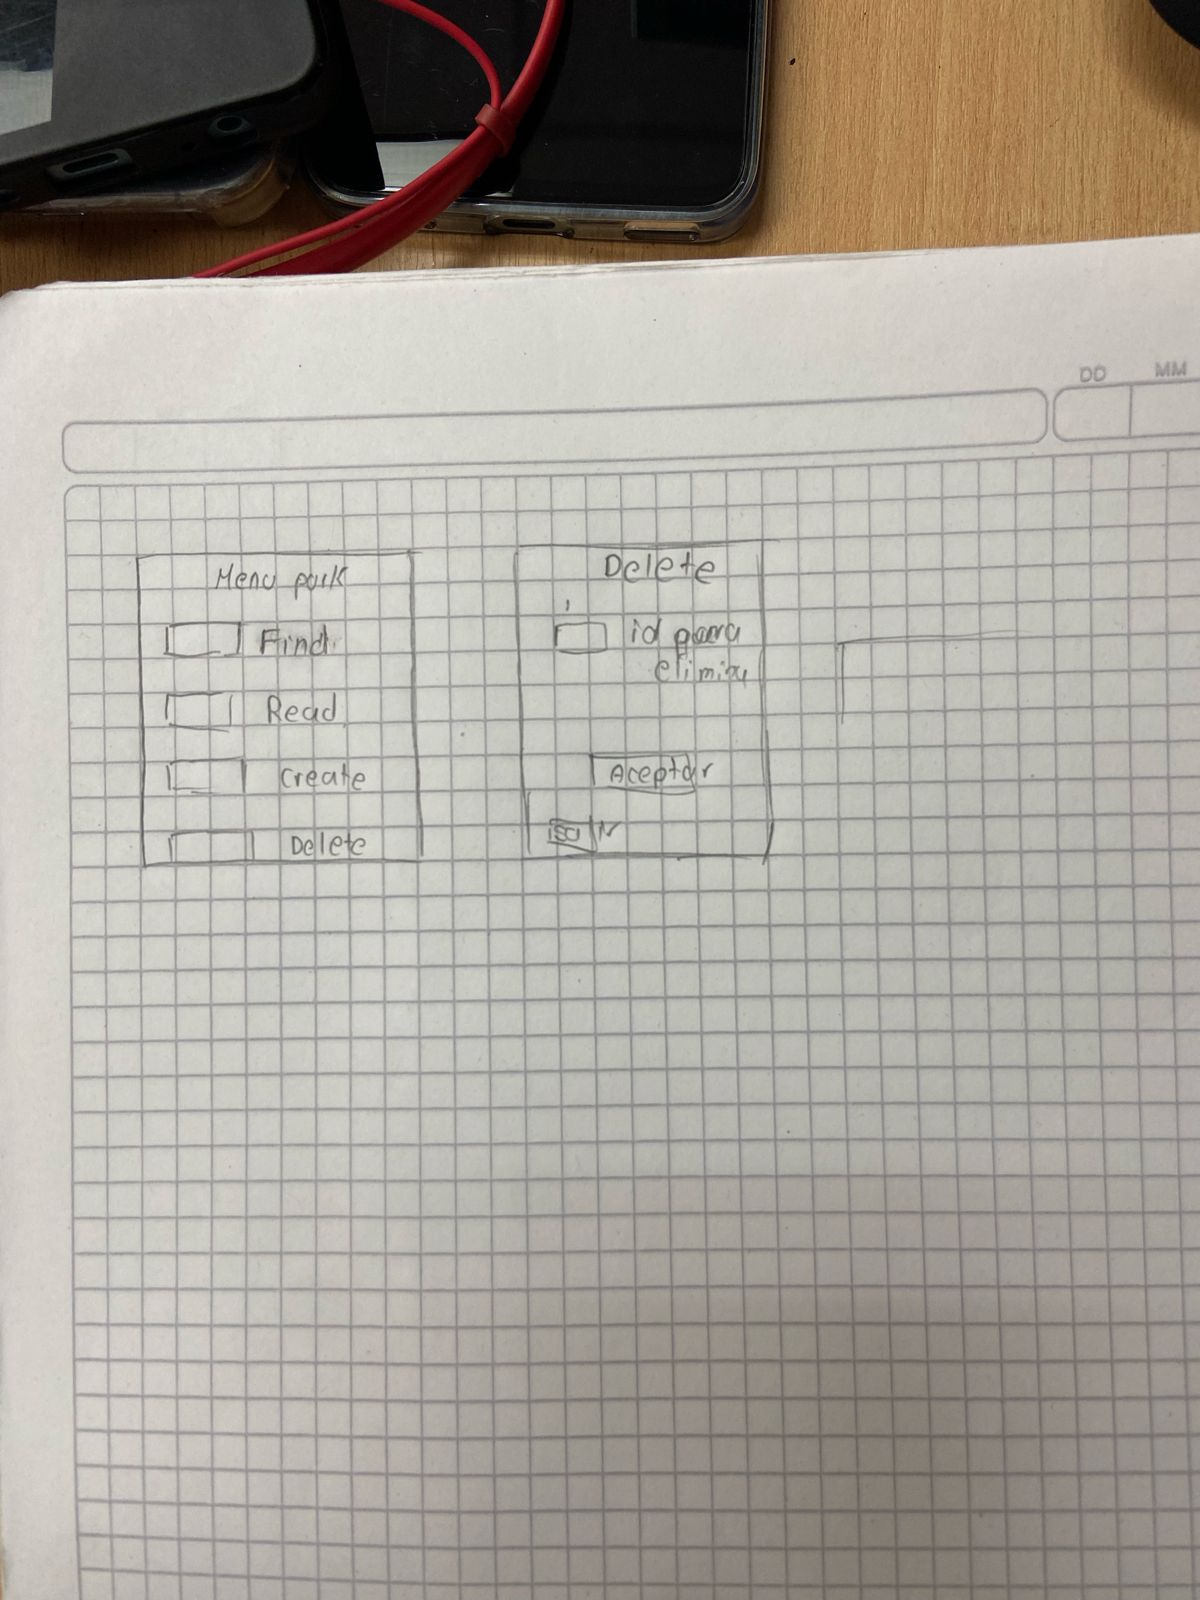 DD MM
Menu park
Find
Read
Create
Delete
Delete
id para
elimin
Aceptar